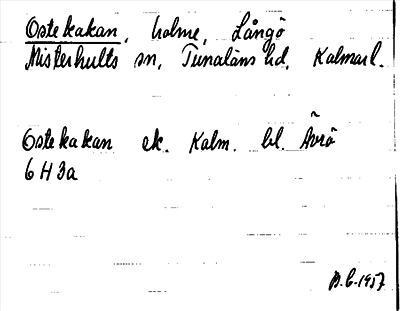 Ostekakan, holme, Långö
Misterhults sn, Tunaläns hd, Kalmarl.
Ostekakan ek. Kalm. bl. Ävrö
6 H 3a
B.C. 1957